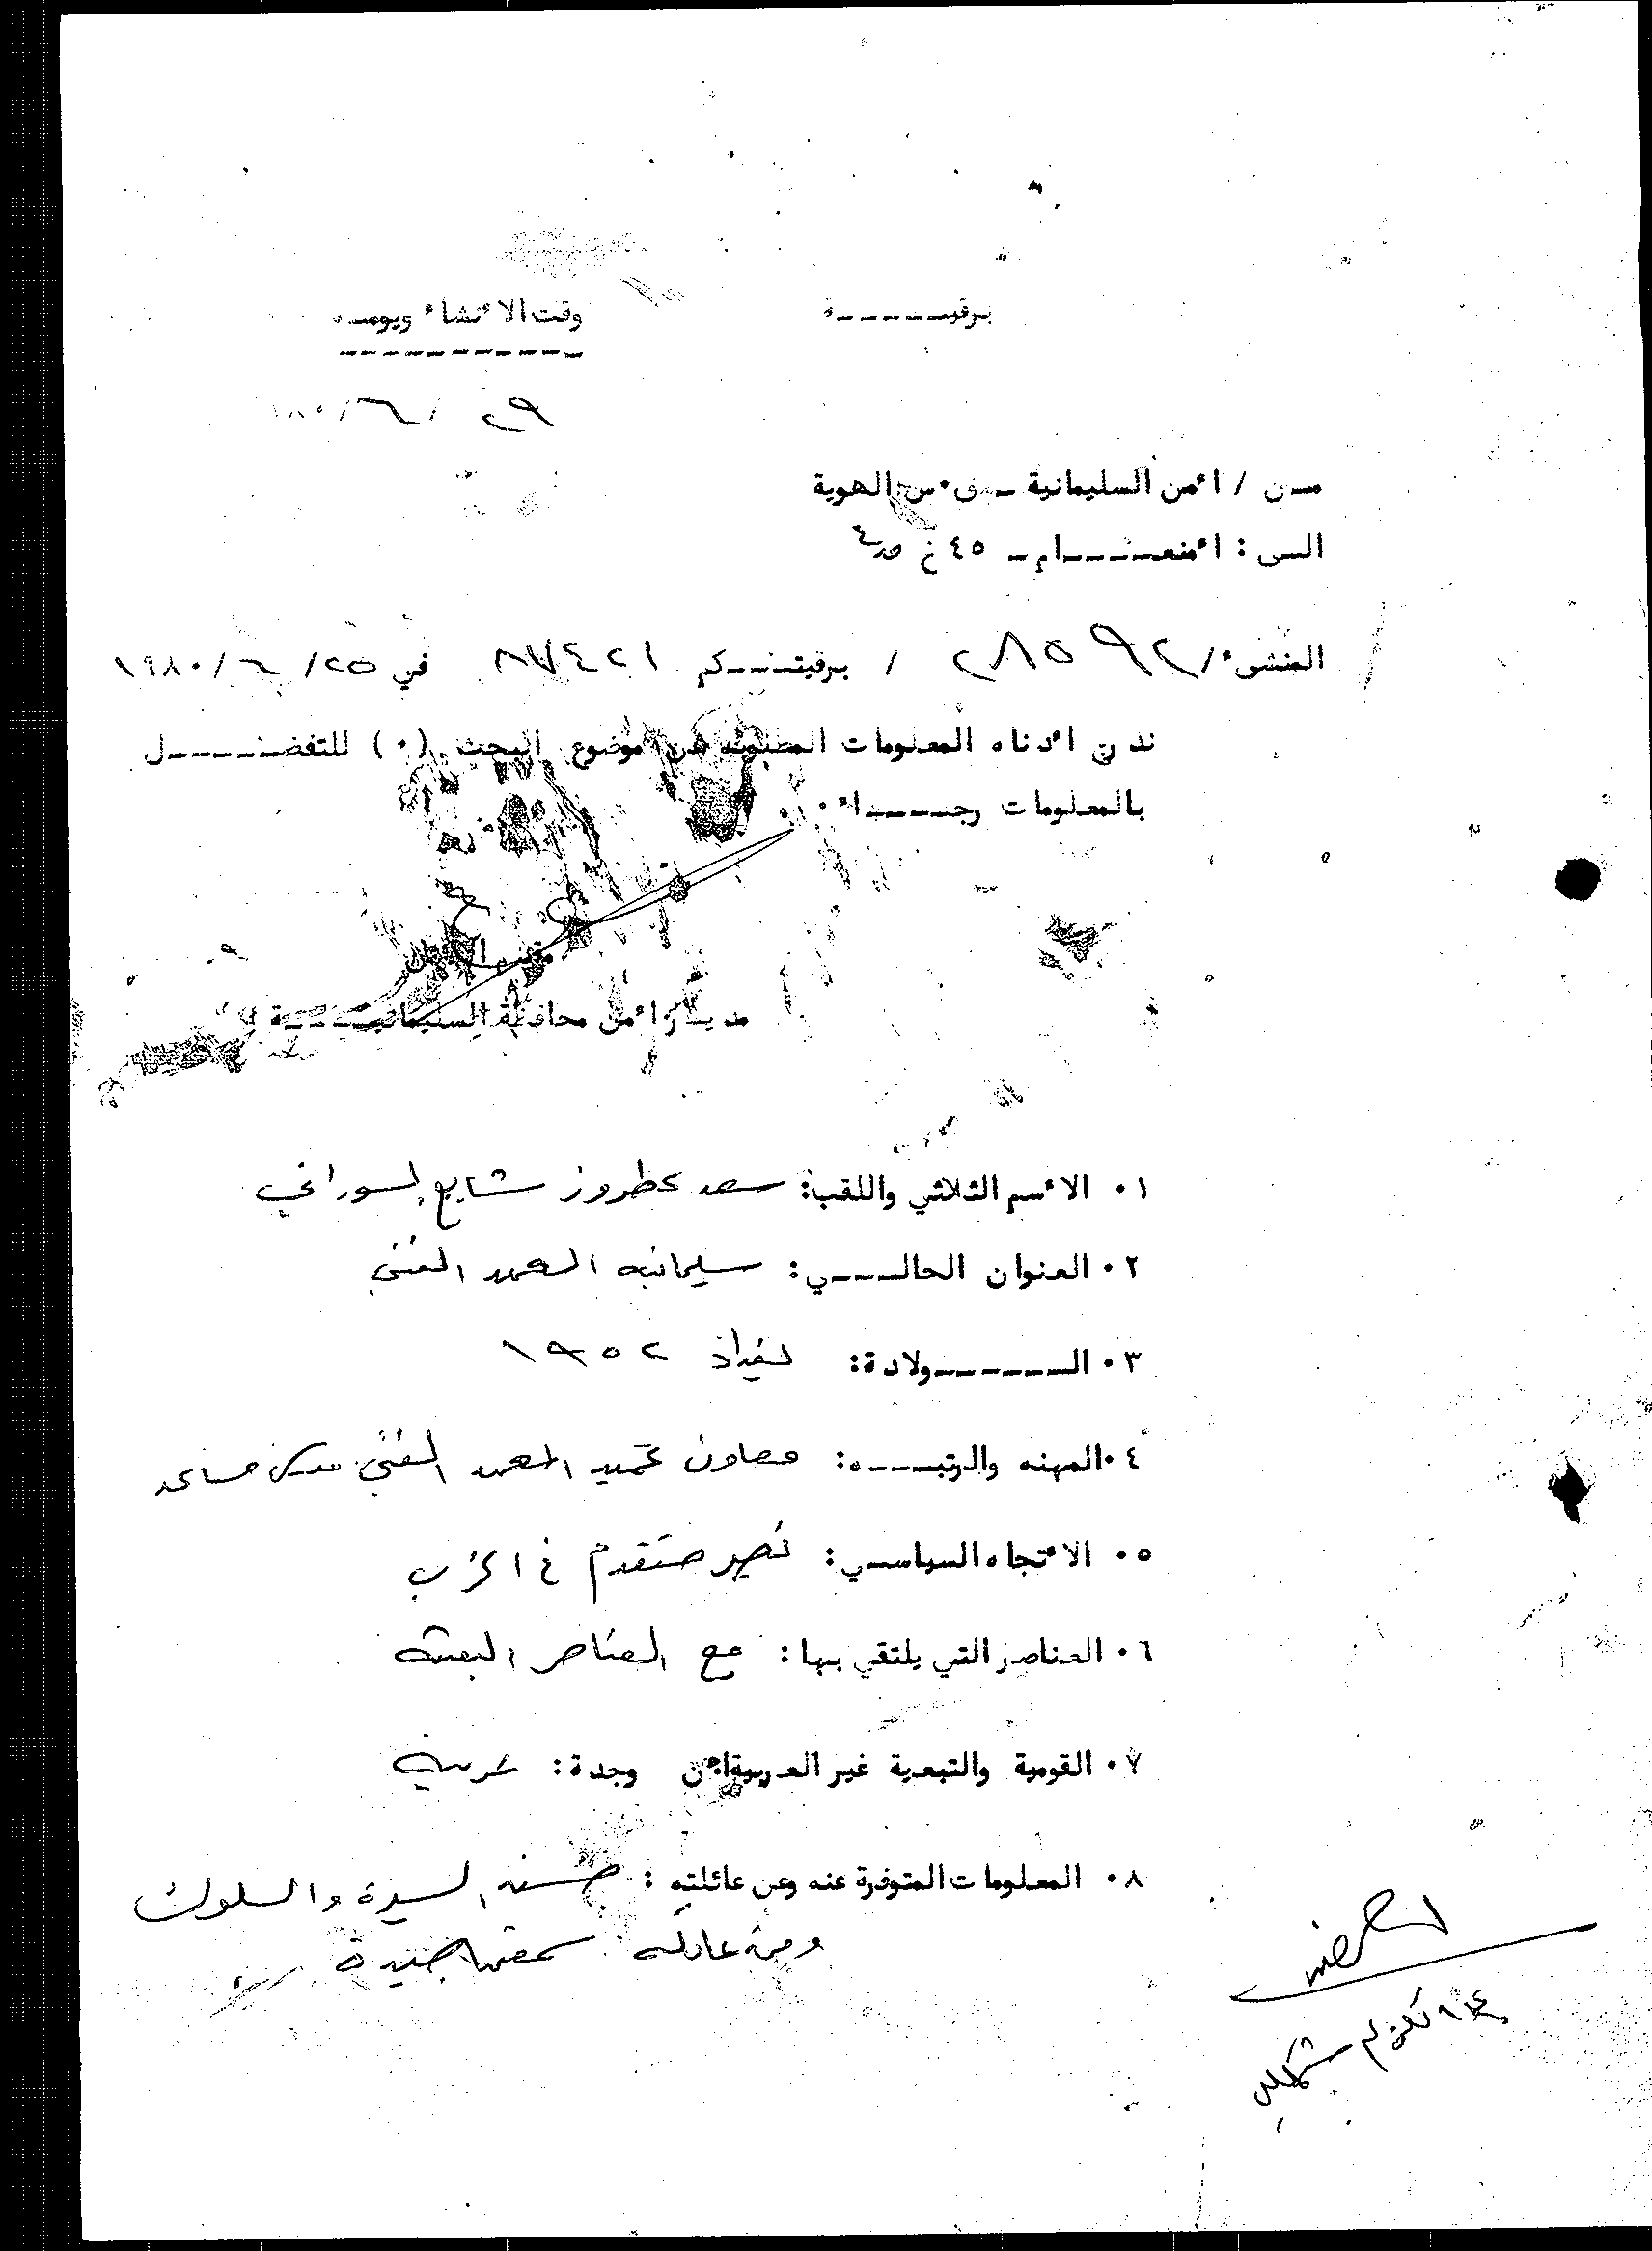 برقيـــــة
وقت الأنشاء ويومه
٢٩ / ٦ / ٩٨٠
مـن / أمن السليمانية ـ س الهوية
الـى : أمنعـــام ـ ٤٥ خ ص٤
المنشىء / ٢٨٥٩٢ / برقيتـكم ٨٧٤٢١ في ٢٥ / ٦ / ١٩٨٠
ندرج أدناه المعلومات المطلوبة عن موضوع البحث (٠) للتفضـــل
بالمعلومات رجـــاء ٠
مديـر أمن محافظة السليمانيـــة
١٠ الأسم الثلاثي واللقب: سعد شايع السوداني
٢٠ العنوان الحالـــي: سليمانيه المعهد الفني
٣٠ الـــــــولادة: بغداد ١٩٥٢
٤٠ المهنه والرتبـــه: معاون عميد المعهد الفني مدرس مساعد
٥٠ الأتجاه السياسـي: نصير متقدم في الحزب
٦٠ العناصر التي يلتقي بها: مع العناصر البعثيه
٧٠ القومية والتبعية غير العربية أن وجدة: عربيه
٨٠ المعلومات المتوفرة عنه وعن عائلته : حسن السيرة والسلوك
ومن عائله سمعتها جيدة